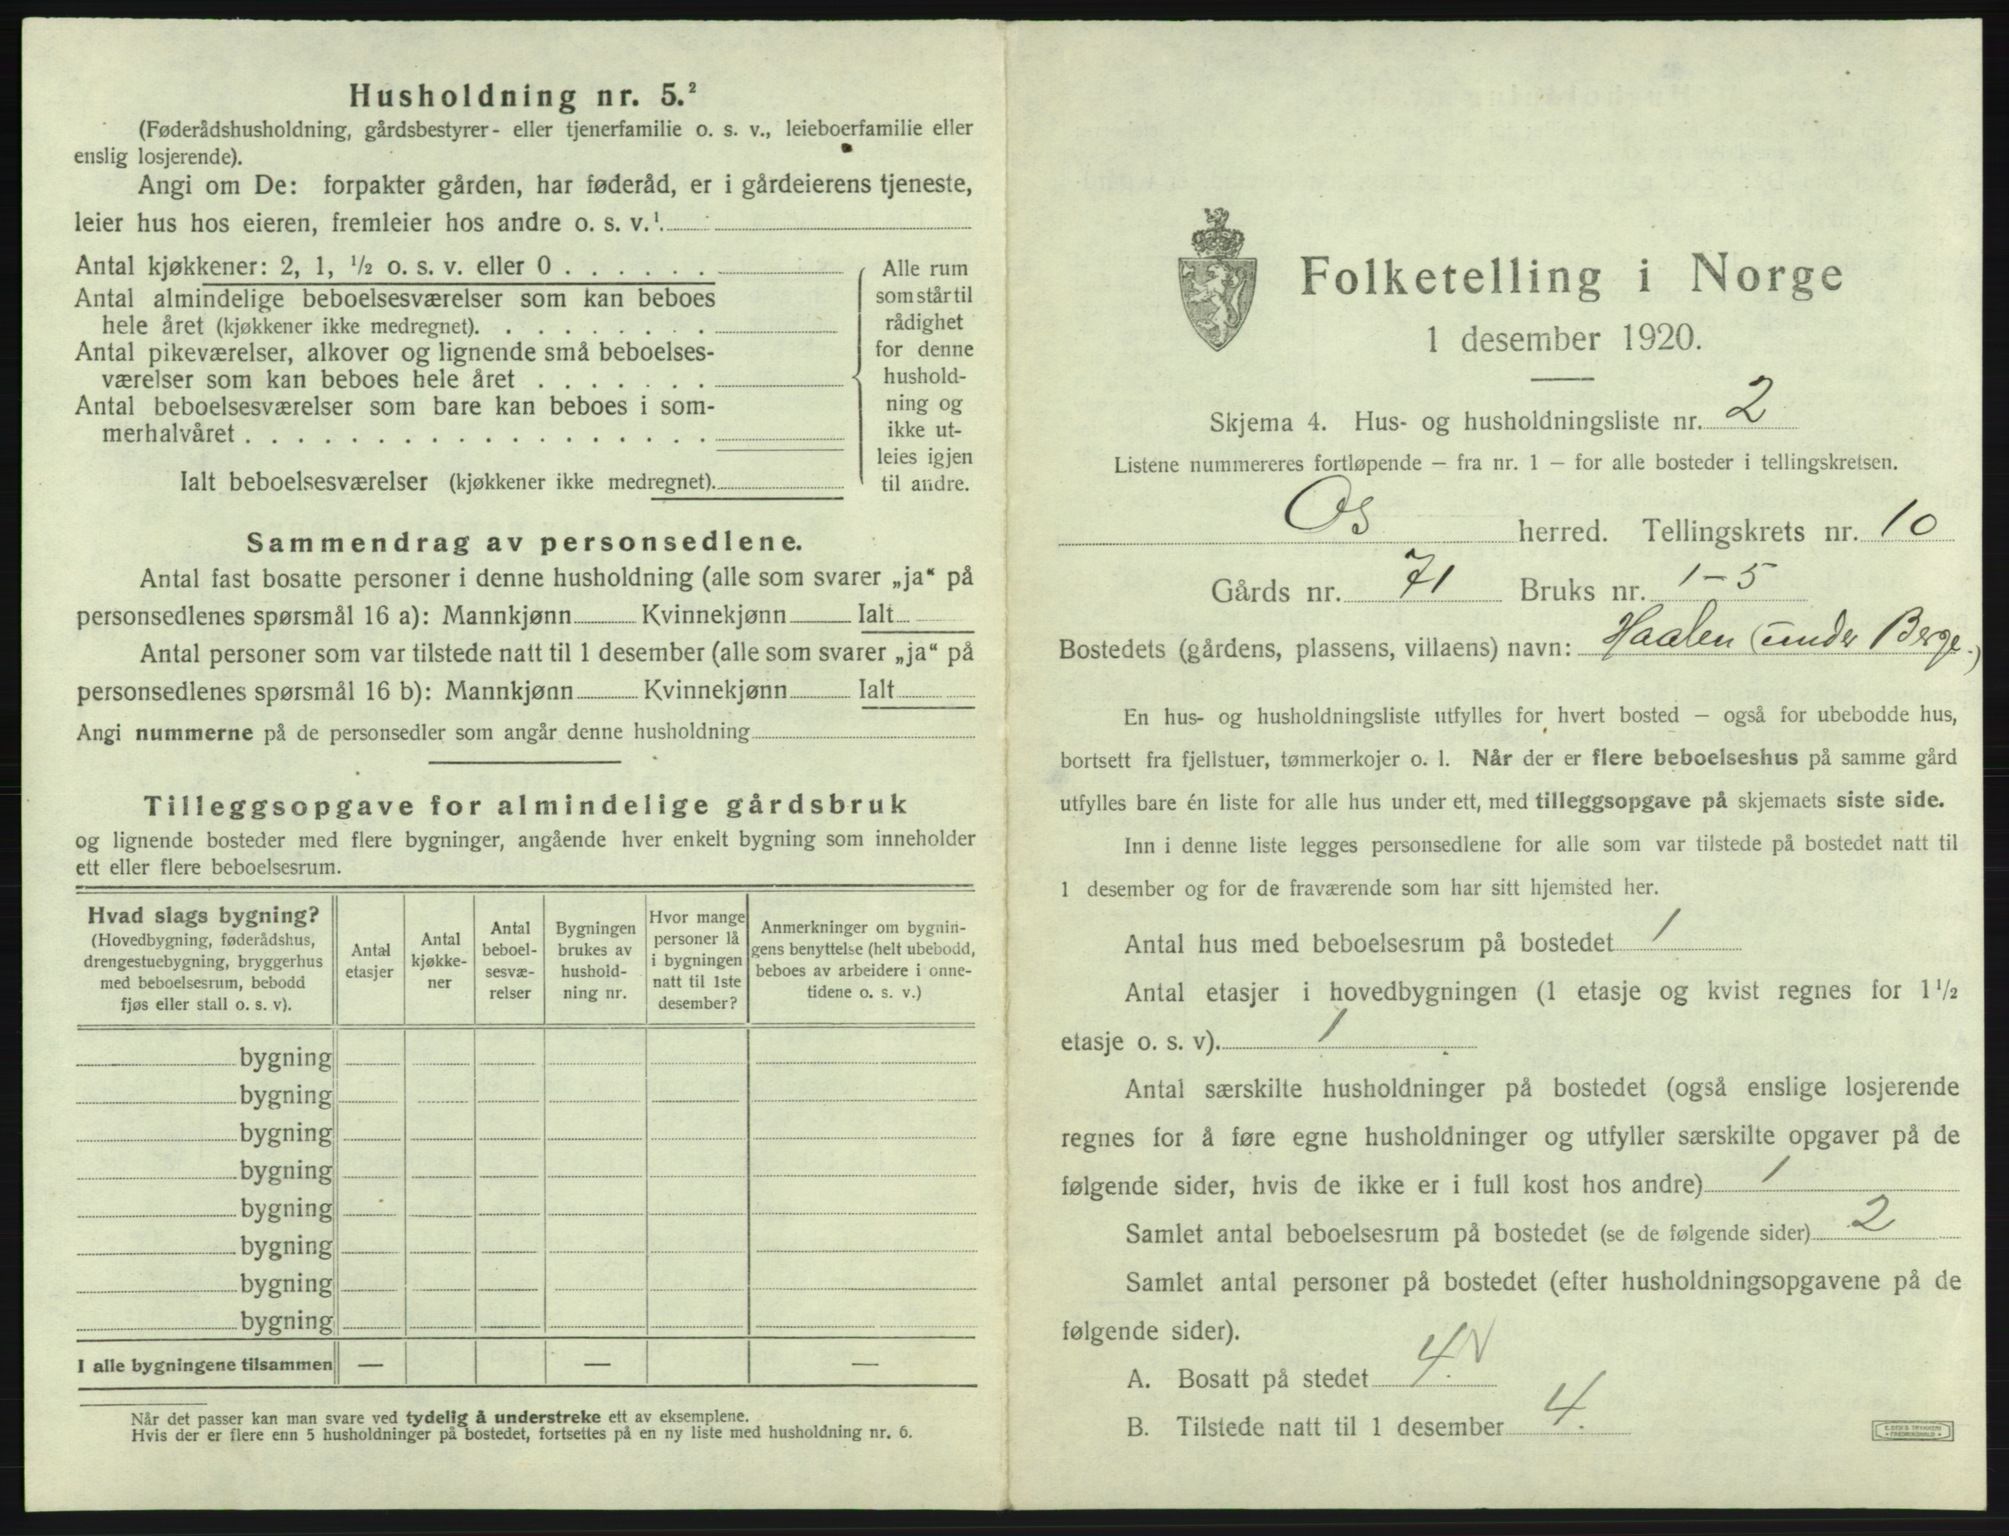 Husholdning nr. 5.²
(Føderådshusholdning, gårdsbestyrer- eller tjenerfamilie o. s. v., leieboerfamilie eller
enslig losjerende).
Angi om De: forpakter gården, har føderåd, er i gårdeierens tjeneste,
leier hus hos eieren, fremleier hos andre o. s. v.¹
Antal kjøkkener: 2, 1, ½ o. s. v. eller 0 . . . . . .
Antal almindelige beboelsesværelser som kan beboes
hele året (kjøkkener ikke medregnet). . . . . . . . .
Antal pikeværelser, alkover og lignende små beboelses-
værelser som kan beboes hele året . . . . . . .
Antal beboelsesværelser som bare kan beboes i som-
merhalvåret . . . . . . . . . . . . . . . . . .
Ialt beboelsesværelser (kjøkkener ikke medregnet).
Alle rum
som står til
rådighet
for denne
hushold-
ning og
ikke ut-
leies igjen
til andre.
Sammendrag av personsedlene.
Antal fast bosatte personer i denne husholdning (alle som svarer „ja“ på
personsedlenes spørsmål 16 a): Mannkjønn Kvinnekjønn Ialt
Antal personer som var tilstede natt til 1 desember (alle som svarer „ja“ på
personsedlenes spørsmål 16 b): Mannkjønn Kvinnekjønn Ialt
Angi nummerne på de personsedler som angår denne husholdning
Tilleggsopgave for almindelige gårdsbruk
og lignende bosteder med flere bygninger, angående hver enkelt bygning som inneholder
ett eller flere beboelsesrum.
Hvad slags bygning?
(Hovedbygning, føderådshus,
drengestuebygning, bryggerhus
med beboelsesrum, bebodd
fjøs eller stall o. s. v).
Antal
etasjer
Antal
kjøkke-
ner
Antal
beboel-
sesvæ-
relser
Bygningen
brukes av
hushold-
ning nr.
Hvor mange
personer lå
i bygningen
natt til 1ste
desember?
Anmerkninger om bygnin-
gens benyttelse (helt ubebodd,
beboes av arbeidere i onne-
tidene o. s. v.)
bygning
bygning
bygning
bygning
bygning
bygning
bygning
bygning
I alle bygningene tilsammen — — —
Når det passer kan man svare ved tydelig å understreke ett av eksemplene.
Hvis der er flere enn 5 husholdninger på bostedet, fortsettes på en ny liste med husholdning nr. 6.
Folketelling i Norge
1 desember 1920.
Skjema 4. Hus- og husholdningsliste nr. 2
Listene nummereres fortløpende – fra nr. 1 – for alle bosteder i tellingskretsen.
Os herred. Tellingskrets nr. 10
Gårds nr. 71 Bruks nr. 1-5
Bostedets (gårdens, plassens, villaens) navn: Haalen (under Berge.)
En hus- og husholdningsliste utfylles for hvert bosted – også for ubebodde hus,
bortsett fra fjellstuer, tømmerkojer o. l. Når der er flere beboelseshus på samme gård
utfylles bare én liste for alle hus under ett, med tilleggsopgave på skjemaets siste side.
Inn i denne liste legges personsedlene for alle som var tilstede på bostedet natt til
1 desember og for de fraværende som har sitt hjemsted her.
Antal hus med beboelsesrum på bostedet 1
Antal etasjer i hovedbygningen (1 etasje og kvist regnes for 1½
etasje o. s. v). 1
Antal særskilte husholdninger på bostedet (også enslige losjerende
regnes for å føre egne husholdninger og utfyller særskilte opgaver på de
følgende sider, hvis de ikke er i full kost hos andre) 1
Samlet antal beboelsesrum på bostedet (se de følgende sider) 2
Samlet antal personer på bostedet (efter husholdningsopgavene på de
følgende sider).
A. Bosatt på stedet 4.
B. Tilstede natt til 1 desember 4.